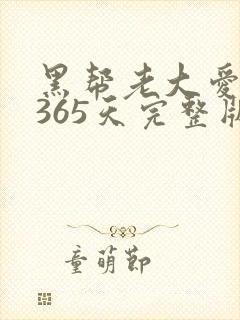 黑帮老大爱
365天完整版
童萌节